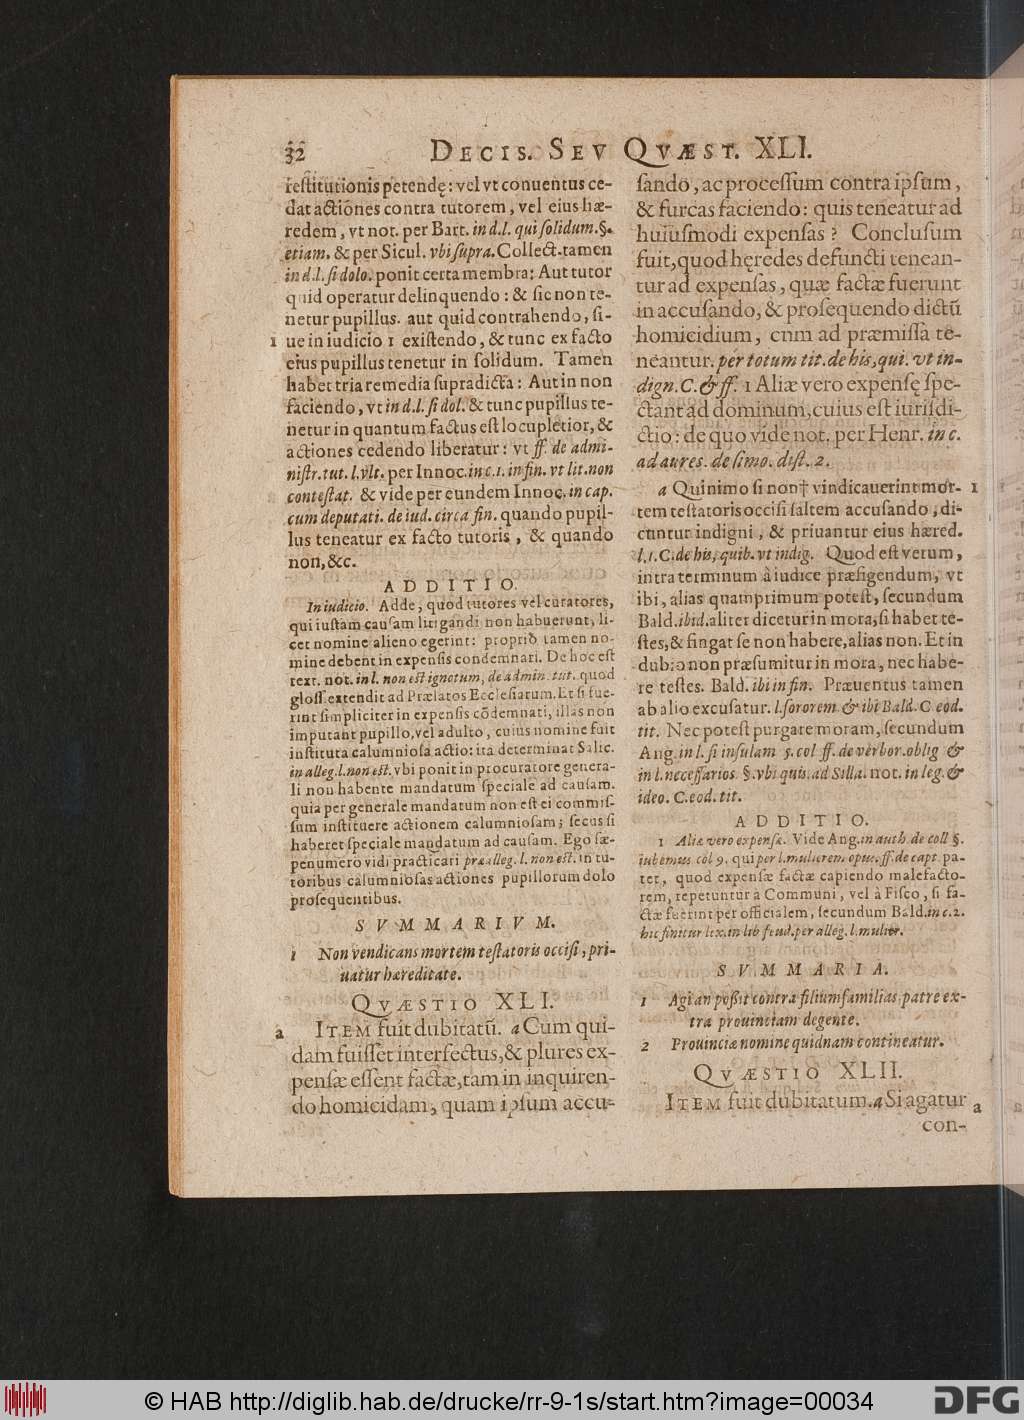 32 DECIS. SEV QVÆST. XLI.
reſtitutionis petendę: vel vt conuentus ce-
dat actiōnes contra tutorem, vel eius hæ-
redem, vt not. per Bart. in d.l. qui ſolidum.§.
etiam. & per Sicul. vbi ſupra. Collect. tamen
in d.l. ſi dolo. ponit certa membra: Aut tutor
quid operatur delinquendo: & ſic non te-
netur pupillus. aut quid contrahendo, ſi-
1 ue in iudicio 1 exiſtendo, & tunc ex facto
eius pupillus tenetur in ſolidum. Tamen
habet tria remedia ſupradicta: Aut in non
faciendo, vt in d.l. ſi dol. & tunc pupillus te-
netur in quantum factus eſt locupletior, &
actiones cedendo liberatur: vt ff. de admi-
niſtr. tut. l. vlt. per Innoc. in c. 1. in fin. vt lit. non
conteſtat. & vide per eundem Innoc. in cap.
cum deputati. de iud. circa fin. quando pupil-
lus teneatur ex facto tutoris, & quando
non, &c.
ADDITIO.
In iudicio. Adde, quod tutores vel curatores,
qui iuſtam cauſam litigandi non habuerunt, li-
cet nomine alieno egerint: proprio tamen no-
mine debent in expenſis condemnari. De hoc eſt
text. not. in l. non eſt ignotum, de admin. tut. quod
gloſſ. extendit ad Prælatos Eccleſiarum. Et ſi fue-
rint ſimpliciter in expenſis cōdemnati, illas non
imputant pupillo, vel adulto, cuius nomine fuit
inſtituta calumnioſa actio: ita determinat Salic.
in alleg. l. non eſt. vbi ponit in procuratore genera-
li non habente mandatum ſpeciale ad cauſam.
quia per generale mandatum non eſt ei commiſ-
ſum inſtituere actionem calumnioſam; ſecus ſi
haberet ſpeciale mandatum ad cauſam. Ego ſæ-
penumero vidi practicari præalleg. l. non eſt. in tu-
toribus calumnioſas actiones pupillorum dolo
proſequentibus.
SVMMARIVM.
1 Non vendicans mortem teſtatoris occiſi, pri-
uatur hæreditate.
QVÆSTIO XLI.
a ITEM fuit dubitatū. a Cum qui-
dam fuiſſet interfectus, & plures ex-
penſæ eſſent factæ, tam in inquiren-
do homicidam, quam ipſum accu-
ſando, ac proceſſum contra ipſum,
& furcas faciendo: quis teneatur ad
huiuſmodi expenſas? Concluſum
fuit, quod hęredes defuncti tenean-
tur ad expenſas, quæ factæ fuerunt
in accuſando, & proſequendo dictū
homicidium, cum ad præmiſſa te-
neantur. per totum tit. de his, qui. vt in-
dign. C. & ff. 1 Aliæ vero expenſę ſpe-
ctant ad dominum, cuius eſt iuriſdi-
ctio: de quo vide not. per Henr. in c.
ad aures. de ſimo. diſt. 2.
a Quinimo ſi non† vindicauerint mor- 1
tem teſtatoris occiſi ſaltem accuſando, di-
cuntur indigni, & priuantur eius hæred.
l. 1. C. de his, quib. vt indig. Quod eſt verum,
intra terminum à iudice præfigendum, vt
ibi, alias quamprimum poteſt, ſecundum
Bald. ibid. aliter dicetur in mora, ſi habet te-
ſtes, & fingat ſe non habere, alias non. Et in
dubio non præſumitur in mora, nec habe-
re teſtes. Bald. ibi in fin. Præuentus tamen
ab alio excuſatur. l. ſororem & ibi Bald. C eod.
tit. Nec poteſt purgare moram, ſecundum
Ang. in l. ſi inſulam §. col ff. de verbor. oblig &
in l. neceſſarios. §. vbi quis. ad Silla. not. in leg. &
ideo. C. eod. tit.
ADDITIO.
1 Aliæ vero expenſæ. Vide Ang. in auth. de coll §.
iubemus col 9. qui per l. mulierem opus. ff. de capt. pa-
tet, quod expenſæ factæ capiendo malefacto-
rem, repetuntur a Communi, vel à Fiſco, ſi fa-
ctæ fuerint per officialem, ſecundum Bald. in c. 2.
hic finitur lex. in lib feud. per alleg. l. mulier.
SVMMARIA.
1 Agi an poßit contra filiumfamilias patre ex-
tra prouinciam degente.
2 Prouinciæ nomine quidnam contineatur.
QVÆSTIO XLII.
ITEM fuit dubitatum. a Si agatur a
con-
© HAB http://diglib.hab.de/drucke/rr-9-1s/start.htm?image=00034
DFG